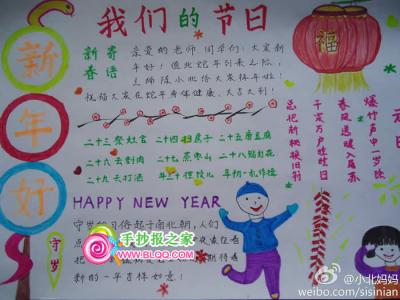 我们的节日
新年好
新寄
春语
亲爱的老师、同学们:大家新
年好!值此蛇年到来之际,
陈小北给大家拜年啦!
祝福大家在蛇年身体健康、大吉大利!
二十三祭灶官 二十四扫房子 二十五磨豆腐
二十六去割肉 二十七蒸枣山 二十八贴
二十九去打酒 年三十捏饺儿 年初一乱作揖
元日
爆竹声中一岁除
春风送暖入屠苏
千家万户曈曈日
总把新桃换旧符
HAPPY NEW YEAR
守岁
守岁习俗起于南北朝,人们
点
把 期待着
新的一年吉祥如意!
手抄报之家
WWW.BLQQ.COM
@小北妈妈
weibo.com/sisinian